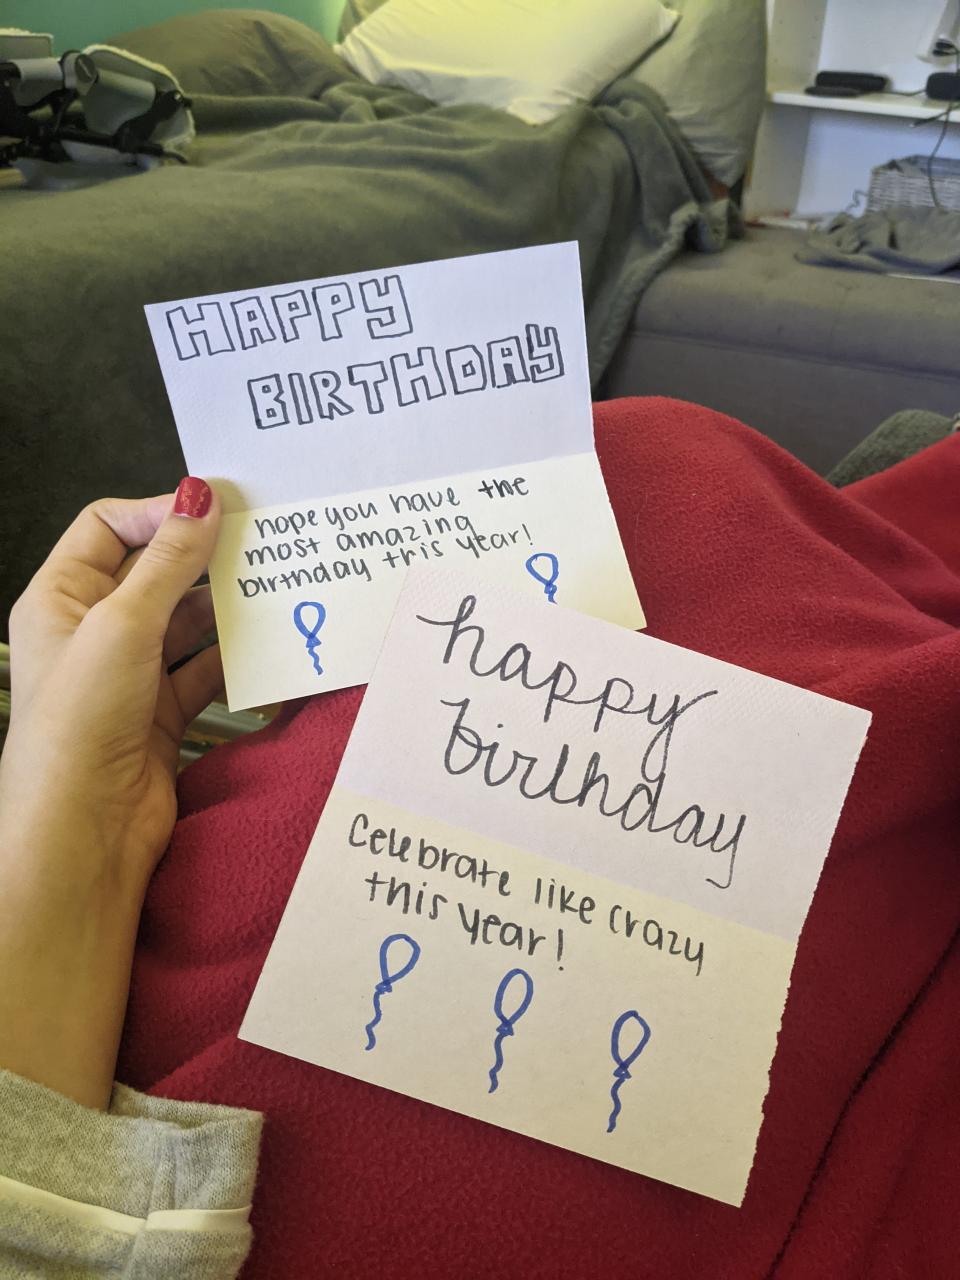 HAPPY
BIRTHDAY
hope you have the
most amazing
birthday this year!
happy
birthday
Celebrate like crazy
this year!